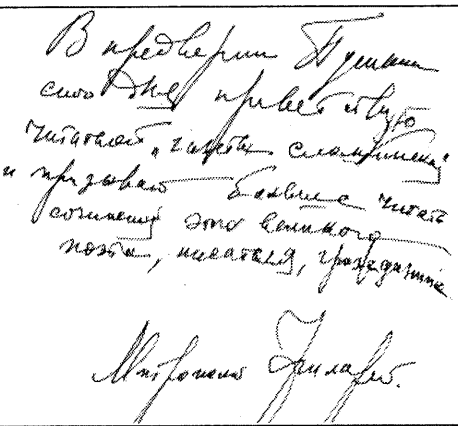 В предверии Пушкин
ского Дня приветствую
читателей „газеты слонимской"
и призываю больше читать
сочинения этого великого
поэта, писателя, гражданина
Митрополит Филарет.